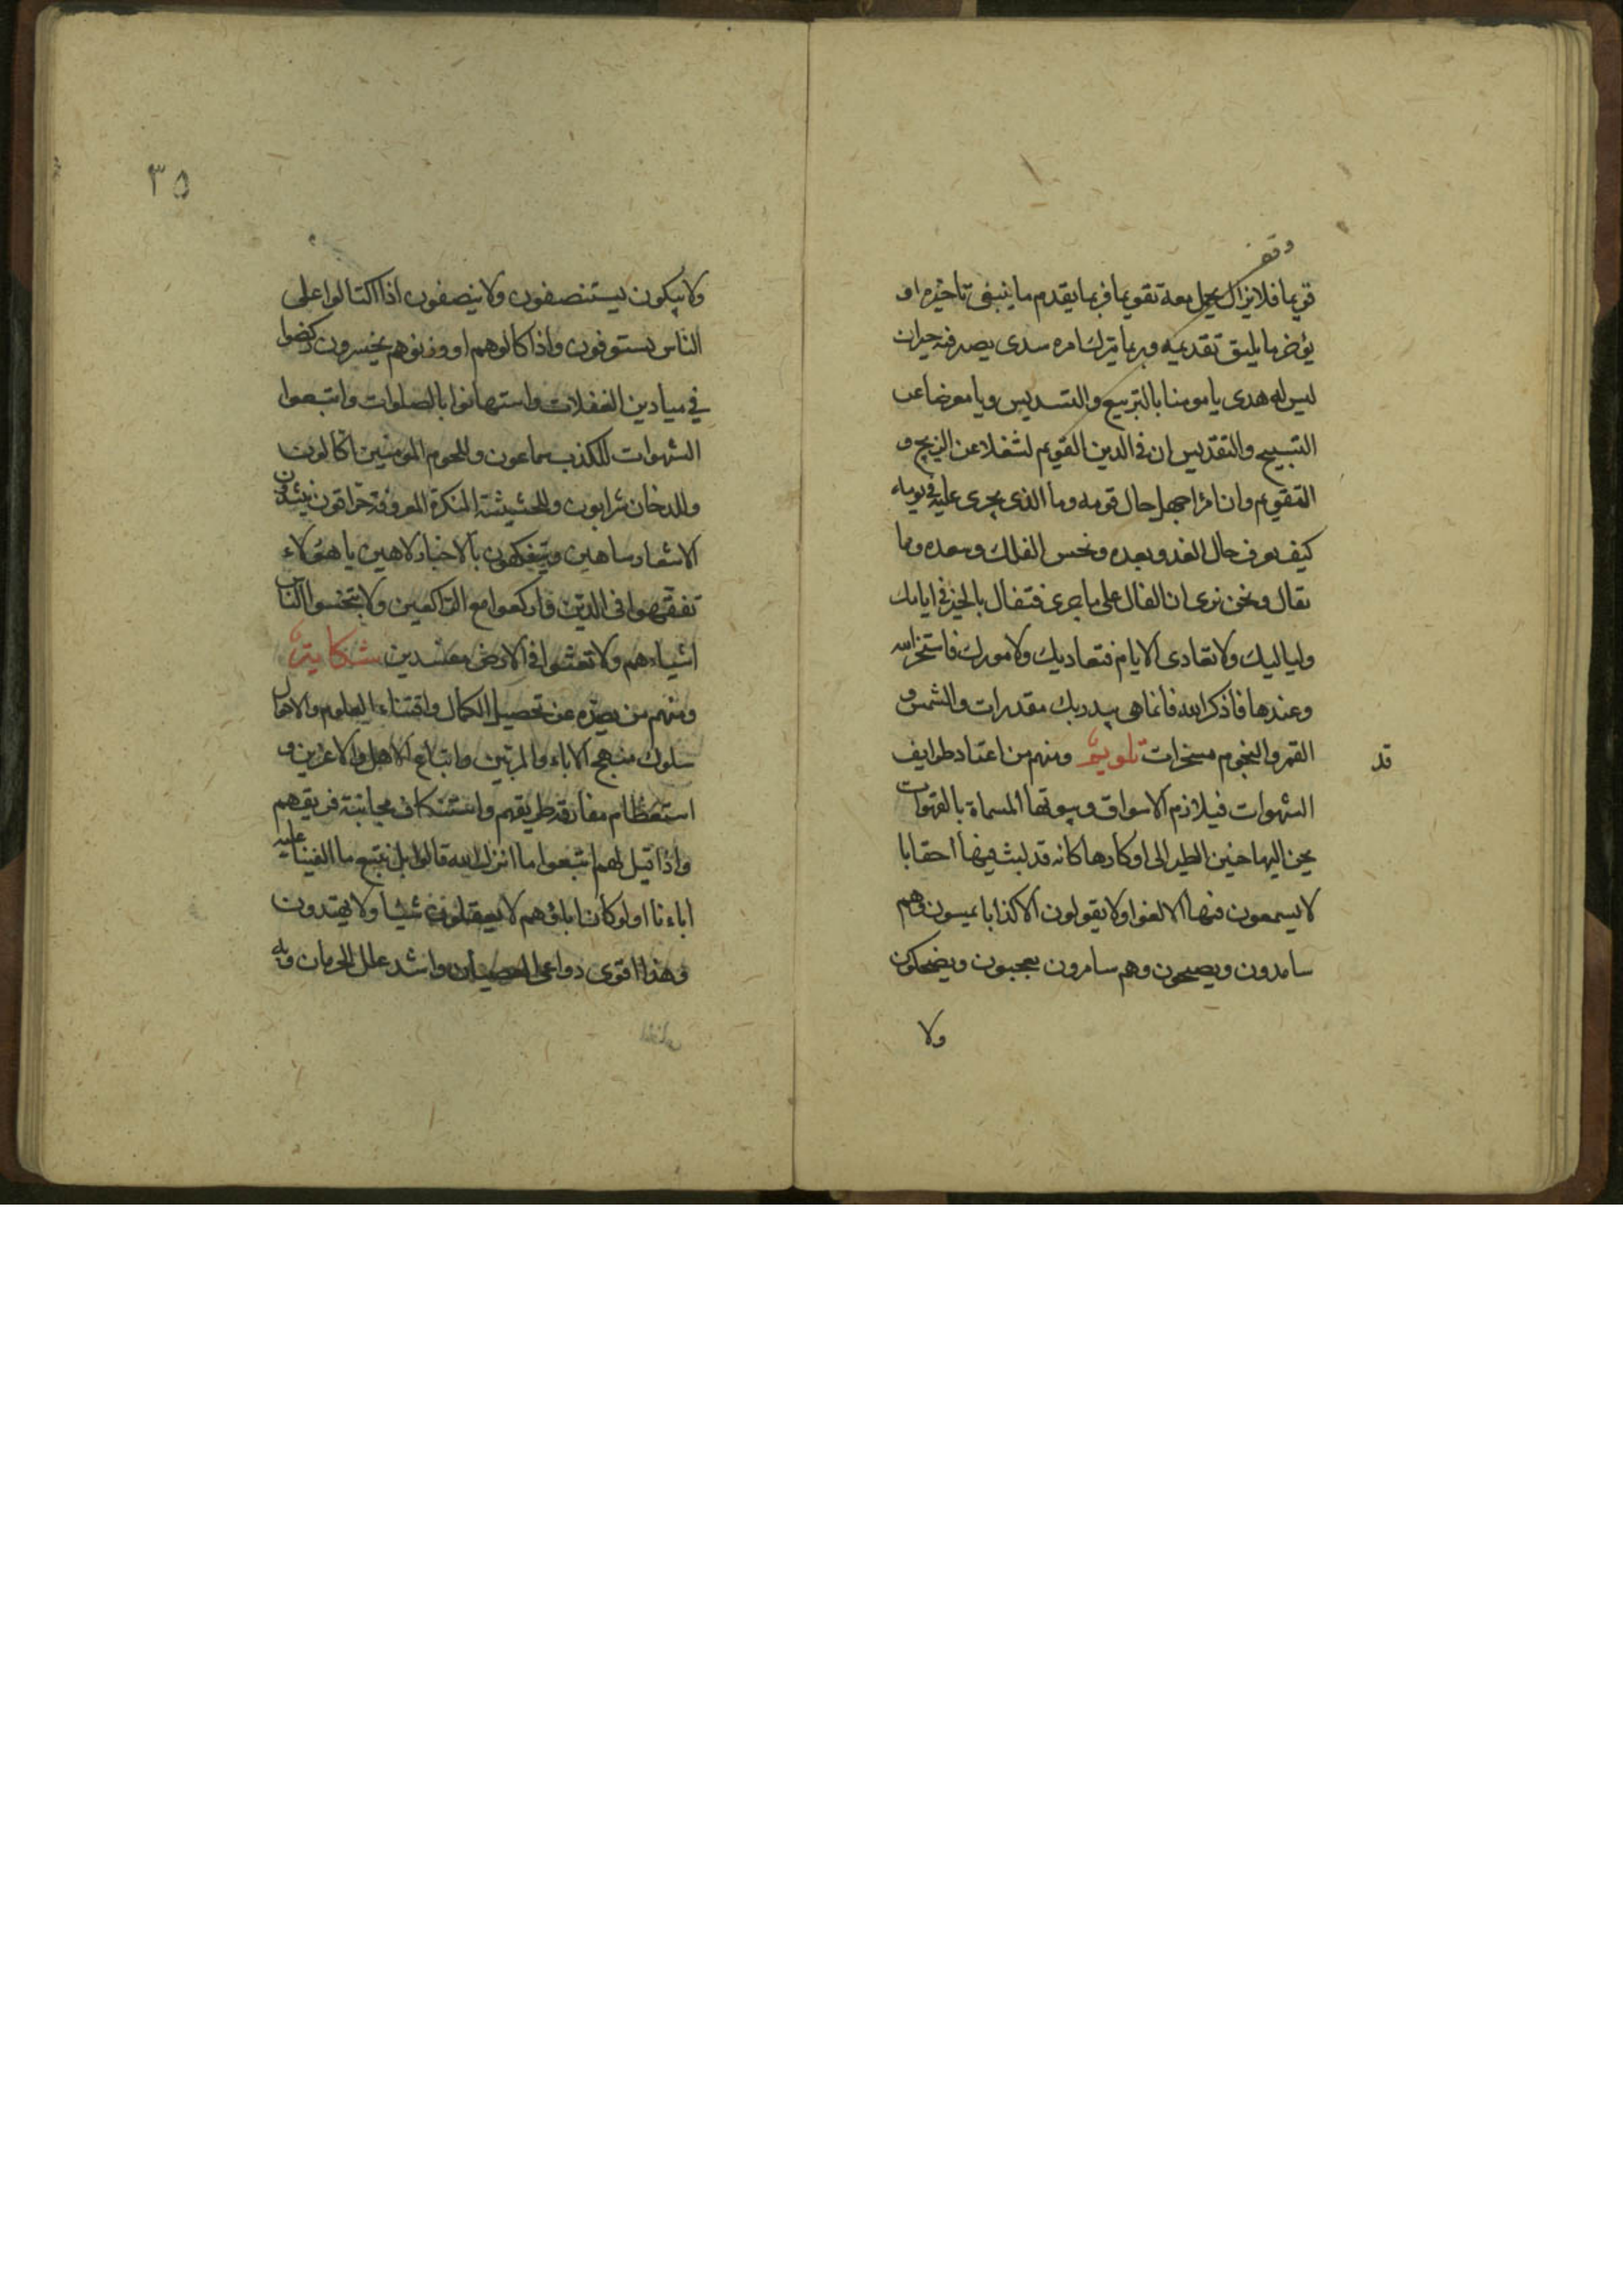 وقف
قويما فلا يزال يحمل معه تقويما فربما يقدم ما ينبغي تاخيره او
يؤخر ما يليق تقديمه وربما يترك امره سدى يصد فيه حيران
ليس له هدى يا مومنا بالتربيع والتسديس ويا معرضا عن
التسبيح والتقديس ان في الدين القويم لشغلا عن الزيج و
التقويم وان امرا جهل حال قومه وما الذي يجري عليه في يومه
كيف يعرف حال الغد وبعده ونحس الفلك وسعده وما
يقال ونحن نرى ان الفال على ما جرى فتفال بالخير في ايامك
ولياليك ولا تعادى الايام فتعاديك ولامورك فاستخر الله
وعندها فاذكر الله فانما هي بيد ربك مقدرات والشمس و
القمر والنجوم مسخرات تلويح ومنهم من اعتاد طرايف
قد
الشهوات فيلازم الاسواق وبيوتها المسماة بالقهوات
يحن اليها حنين الطير الى اوكارها كانه قد لبث فيها احقابا
لا يسمعون فيها الا لغوا ولا يقولون الا كذابا يمسون وهم
سامدون ويصبحون وهم سامرون يعجبون ويضحكون
ولا
٣٥
ولا يبكون يستنصفون ولا ينصفون اذا اكتالوا على
الناس يستوفون واذا كالوهم او وزنوهم يخسرون ركضوا
في ميادين الغفلات واستهانوا بالصلوات واتبعوا
الشهوات للكذب سماعون وللحوم المومنين اكالون
وللدخان شرابون وللحشيشة المنكرة المعروفة حراقون ينشدون
الاشعار ساهين ويتفكهون بالاخبار لاهين يا هؤلاء
تفقهوا في الدين واركعوا مع الراكعين ولا تبخسوا الناس
اشياءهم ولا تعثوا في الارض مفسدين شكاية
ومنهم من يصده عن تحصيل الكمال واقتناء العلوم والاعمال
سلوك منهج الاباء والمربين واتباع الاهل والاعزين و
استعظام مفارقة طريقهم واستنكاف مجانبة فريقهم
واذا قيل لهم اتبعوا ما انزل الله قالوا بل نتبع ما الفينا عليه
اباءنا اولو كان اباؤهم لا يعقلون شيئا ولا يهتدون
وهذا اقوى دواعي العصيان واشد علل الحرمان وبه